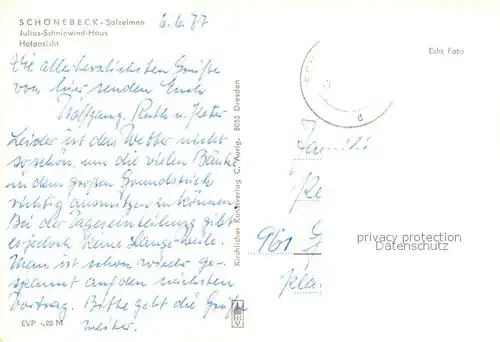 SCHÖNEBECK - Salzelmen
6.6.77
Julius-Schniewind-Haus
Hofansicht
Die allerherzlichsten Grüße
von hier senden Euch
Wolfgang, Ruth u. Peter
Leider ist das Wetter nicht
so schön, um die vielen Bänke
in dem großen Grundstück
richtig ausnützen zu können.
Bei der Tageseinteilung gibt
es jedoch keine Lange-weile.
Man ist schon wieder ge-
spannt auf den nächsten
Vortrag. Bitte gebt die Grüße
weiter.
EVP -,20 M
Kirchlicher Kunstverlag C. Aurig, 8053 Dresden
Echt Foto
Famili
961 G
privacy protection
Datenschutz